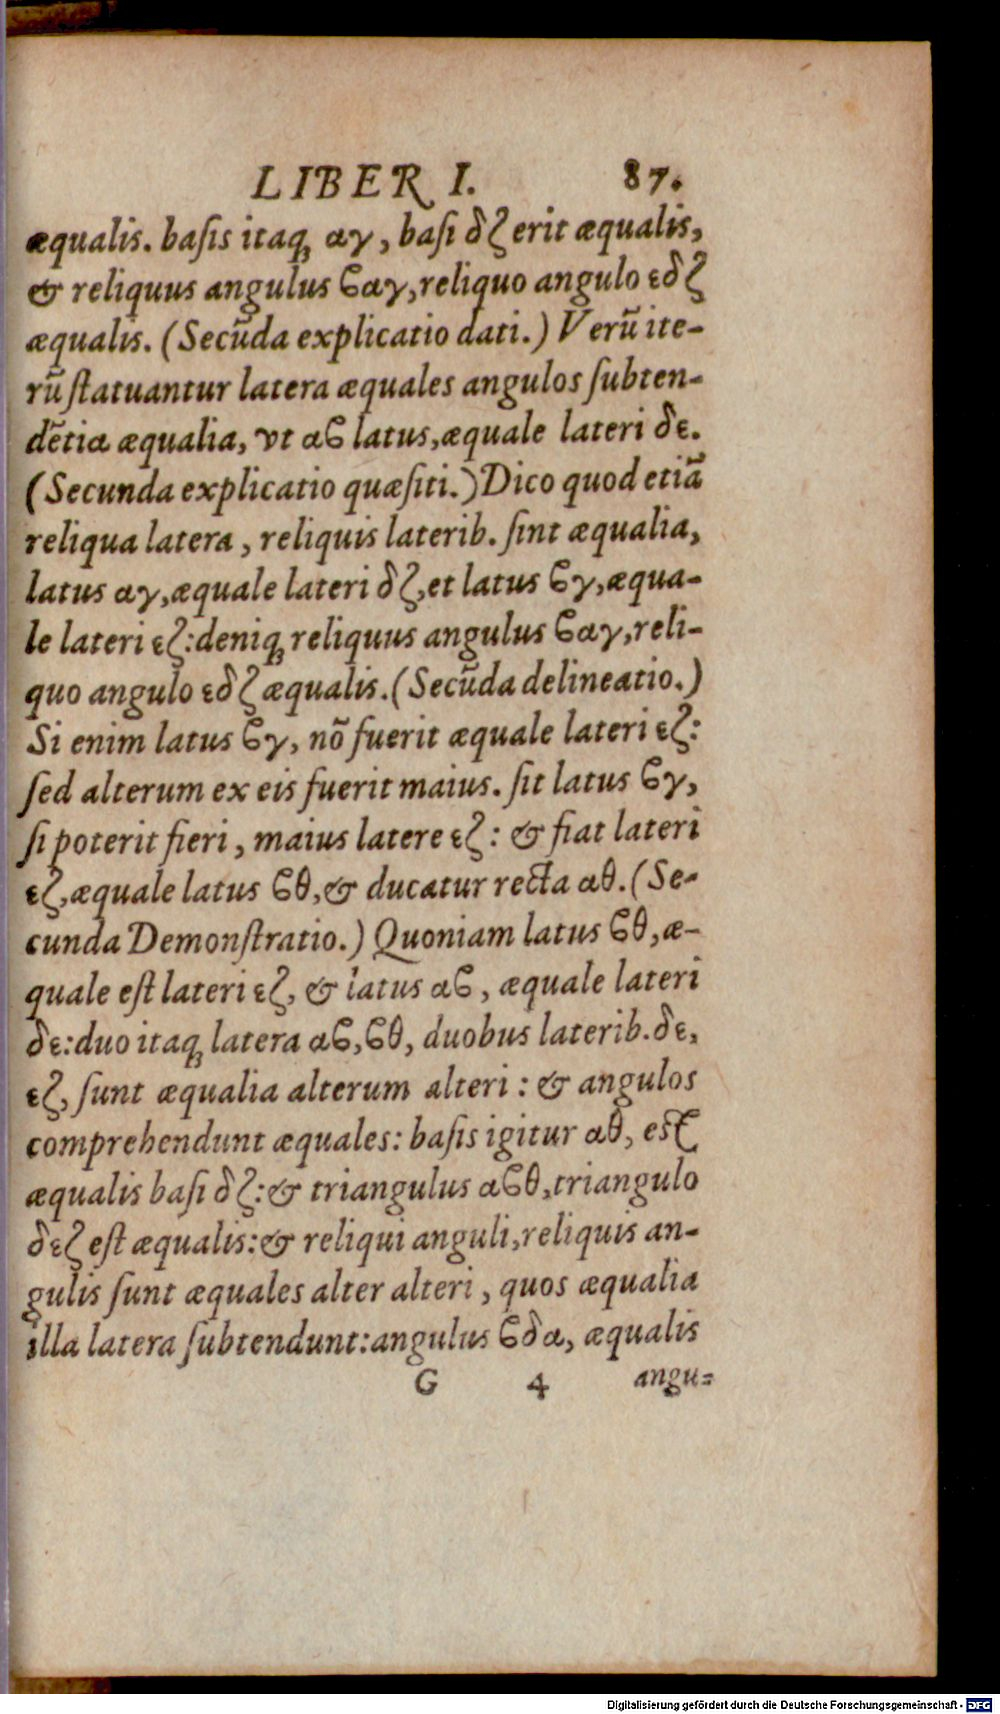 LIBER I. 87.
æqualis. basis itaqꝫ αγ, basi δζ erit æqualis,
& reliquus angulus ϐαγ, reliquo angulo εδζ
æqualis. (Secūda explicatio dati.) Verū ite-
rū statuantur latera æquales angulos subten-
dētia æqualia, vt αϐ latus, æquale lateri δε.
(Secunda explicatio quæsiti.) Dico quod etiā
reliqua latera, reliquis laterib. sint æqualia,
latus αγ, æquale lateri δζ, et latus ϐγ, æqua-
le lateri εζ: deniqꝫ reliquus angulus ϐαγ, reli-
quo angulo εδζ æqualis. (Secūda delineatio.)
Si enim latus ϐγ, nō fuerit æquale lateri εζ:
sed alterum ex eis fuerit maius. sit latus ϐγ,
si poterit fieri, maius latere εζ: & fiat lateri
εζ, æquale latus ϐθ, & ducatur recta αθ. (Se-
cunda Demonstratio.) Quoniam latus ϐθ, æ-
quale est lateri εζ, & latus αϐ, æquale lateri
δε: duo itaqꝫ latera αϐ, ϐθ, duobus laterib. δε,
εζ, sunt æqualia alterum alteri: & angulos
comprehendunt æquales: basis igitur αθ, est
æqualis basi δζ: & triangulus αϐθ, triangulo
δεζ est æqualis: & reliqui anguli, reliquis an-
gulis sunt æquales alter alteri, quos æqualia
illa latera subtendunt: angulus ϐδα, æqualis
G 4 angu-
Digitalisierung gefördert durch die Deutsche Forschungsgemeinschaft - DFG